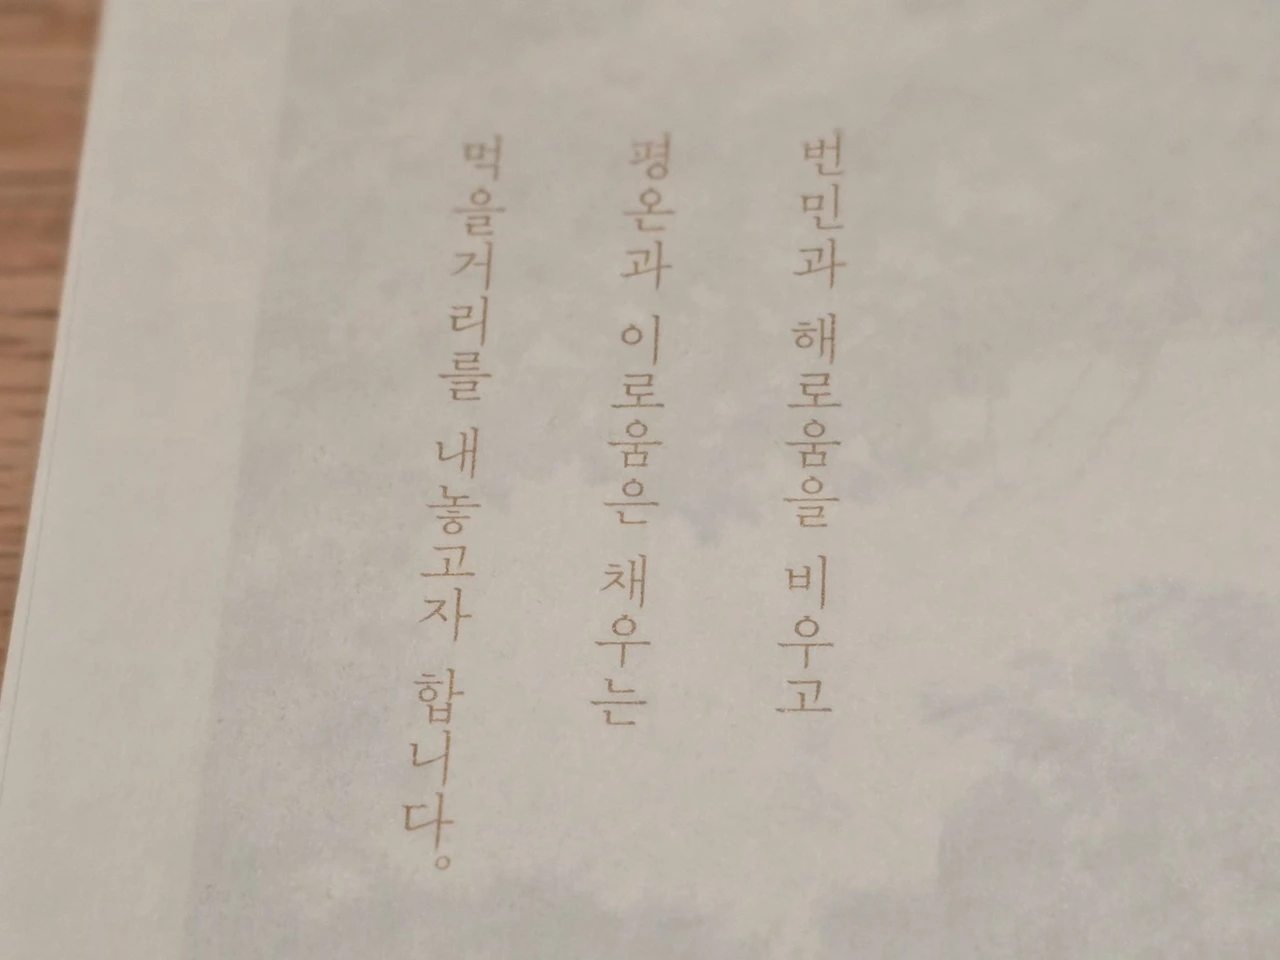 번민과 해로움을 비우고
평온과 이로움은 채우는
먹을거리를 내놓고자 합니다。